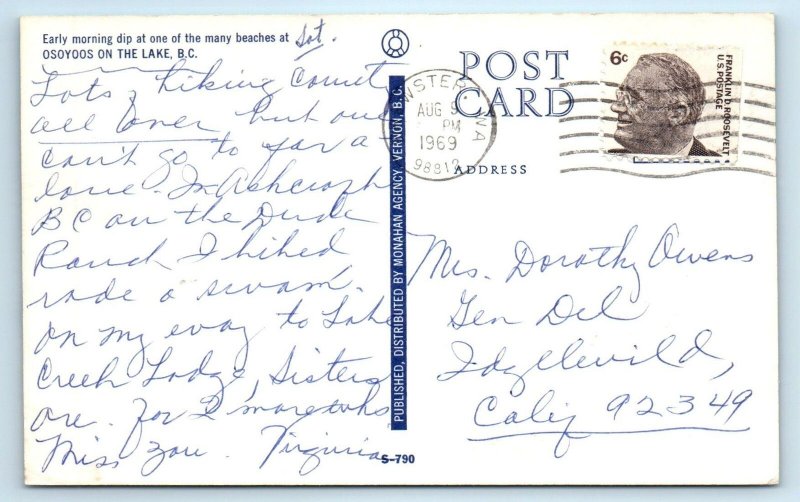 Early morning dip at one of the many beaches at
OSOYOOS ON THE LAKE, B.C.
Sat.
Lots hiking country
all over but one
can't go to far a
lone. In Ashcroft
BC on the Dude
Ranch I hiked
rode & swam.
on my way to Lake
Creek Lodge, Sisters
ore. for 2 more wks
Miss You. Virginia
PUBLISHED, DISTRIBUTED BY MONAHAN AGENCY, VERNON, B.C.
S-790
POST
CARD
ADDRESS
WSTER, WA
AUG 9
PM
1969
98812
6c
FRANKLIN D. ROOSEVELT
U.S. POSTAGE
Mrs. Dorothy Owens
Gen Del
Idyllewild,
Calif 92349